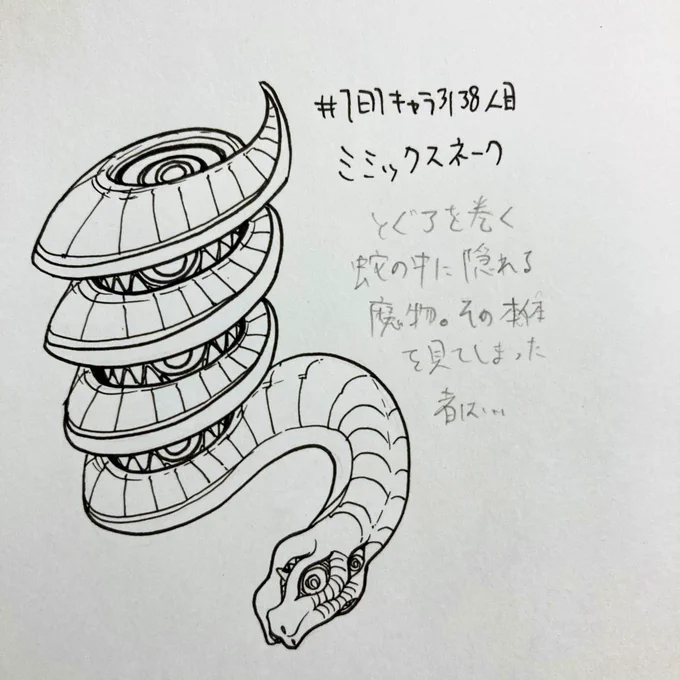 #1日1キャラ3138人目
ミミックスネーク
とぐろを巻く
蛇の中に隠れる
魔物。その本体
を見てしまった
者は…